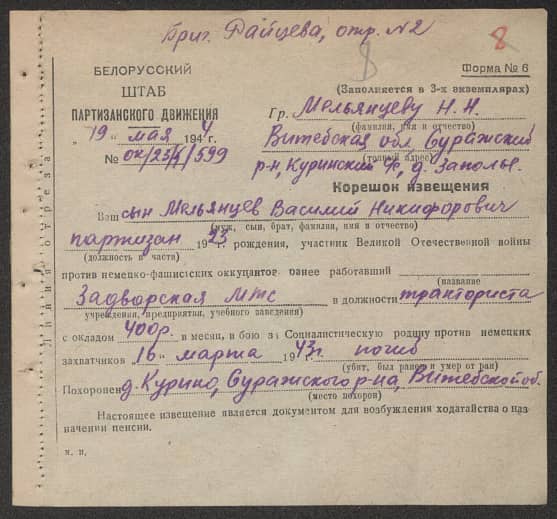 Бриг. Райцева, отр. №2
8
8
БЕЛОРУССКИЙ
ШТАБ
ПАРТИЗАНСКОГО ДВИЖЕНИЯ
„19“ мая 1944 г.
№ ок/23/4/599
Форма № 6
(Заполняется в 3-х экземплярах)
Гр. Мельянцеву Н. Н.
(фамилия, имя и отчество)
Витебская обл. Суражский
(точный адрес)
р-н, Куринский с/с, д. Заполье.
Корешок извещения
Ваш сын Мельянцев Василий Никифорович
(муж, сын, брат, фамилия, имя и отчество)
партизан 1923 г. рождения, участник Великой Отечественной войны
(должность и часть)
против немецко-фашистских оккупантов ранее работавший
(название
Задворская МТС в должности тракториста
учреждения, предприятия, учебного заведения)
с окладом 400р. в месяц, в бою за Социалистическую родину против немецких
захватчиков „16“ марта 1943г. погиб
(убит, был ранен и умер от ран)
Похоронен д. Курино, Суражского р-на, Витебской об.
(место похорон)
Настоящее извещение является документом для возбуждения ходатайства о наз-
начении пенсии.
м. п.
Линия отреза